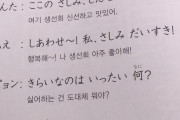 んた: ここの さしみ、し
여기 생선회 신선하고 맛있어.
え: しあわせ〜! 私、さしみ だいすき!
행복해~! 나 생선회 아주 좋아해!
ョン: きらいなのは いったい 何?
싫어하는 건 도대체 뭐야?